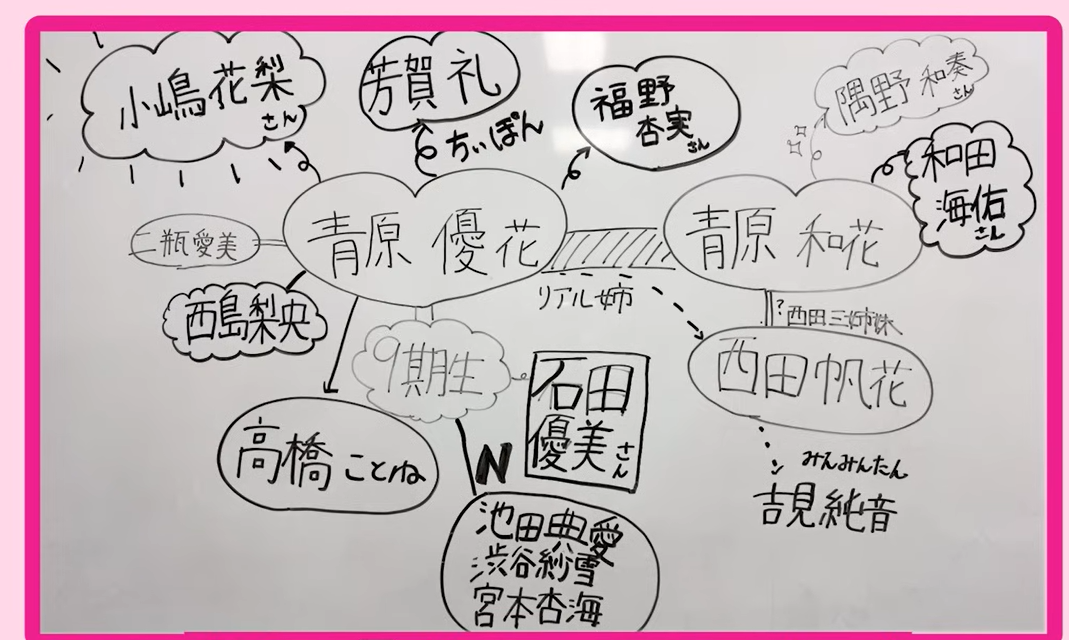 小嶋花梨
さん
芳賀礼
ちぃぽん
福野
杏実
さん
隅野和奏
さん
和田
海佑
さん
二瓶愛美
青原優花
青原和花
リアル姉
西島梨央
9期生
?西田三姉妹
西田帆花
石田
優美
さん
高橋ことね
N
みんみんたん
吉見純音
池田典愛
渋谷紗雪
宮本杏海